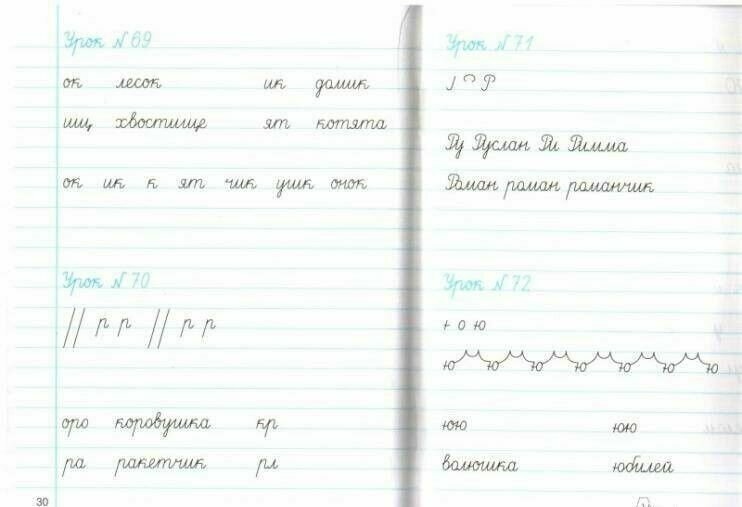 Урок №69
ок лесок ик домик
ищ хвостище ят котята
ок ик к ят чик ушк онок
Урок №70
р р р р
оро коровушка кр
ра ракетчик рл
30
Урок №71
Р
Ру Руслан Ри Римма
Роман роман романчик
Урок №72
+ о ю
ю ю ю ю ю ю ю
юю юю
волюшка юбилей